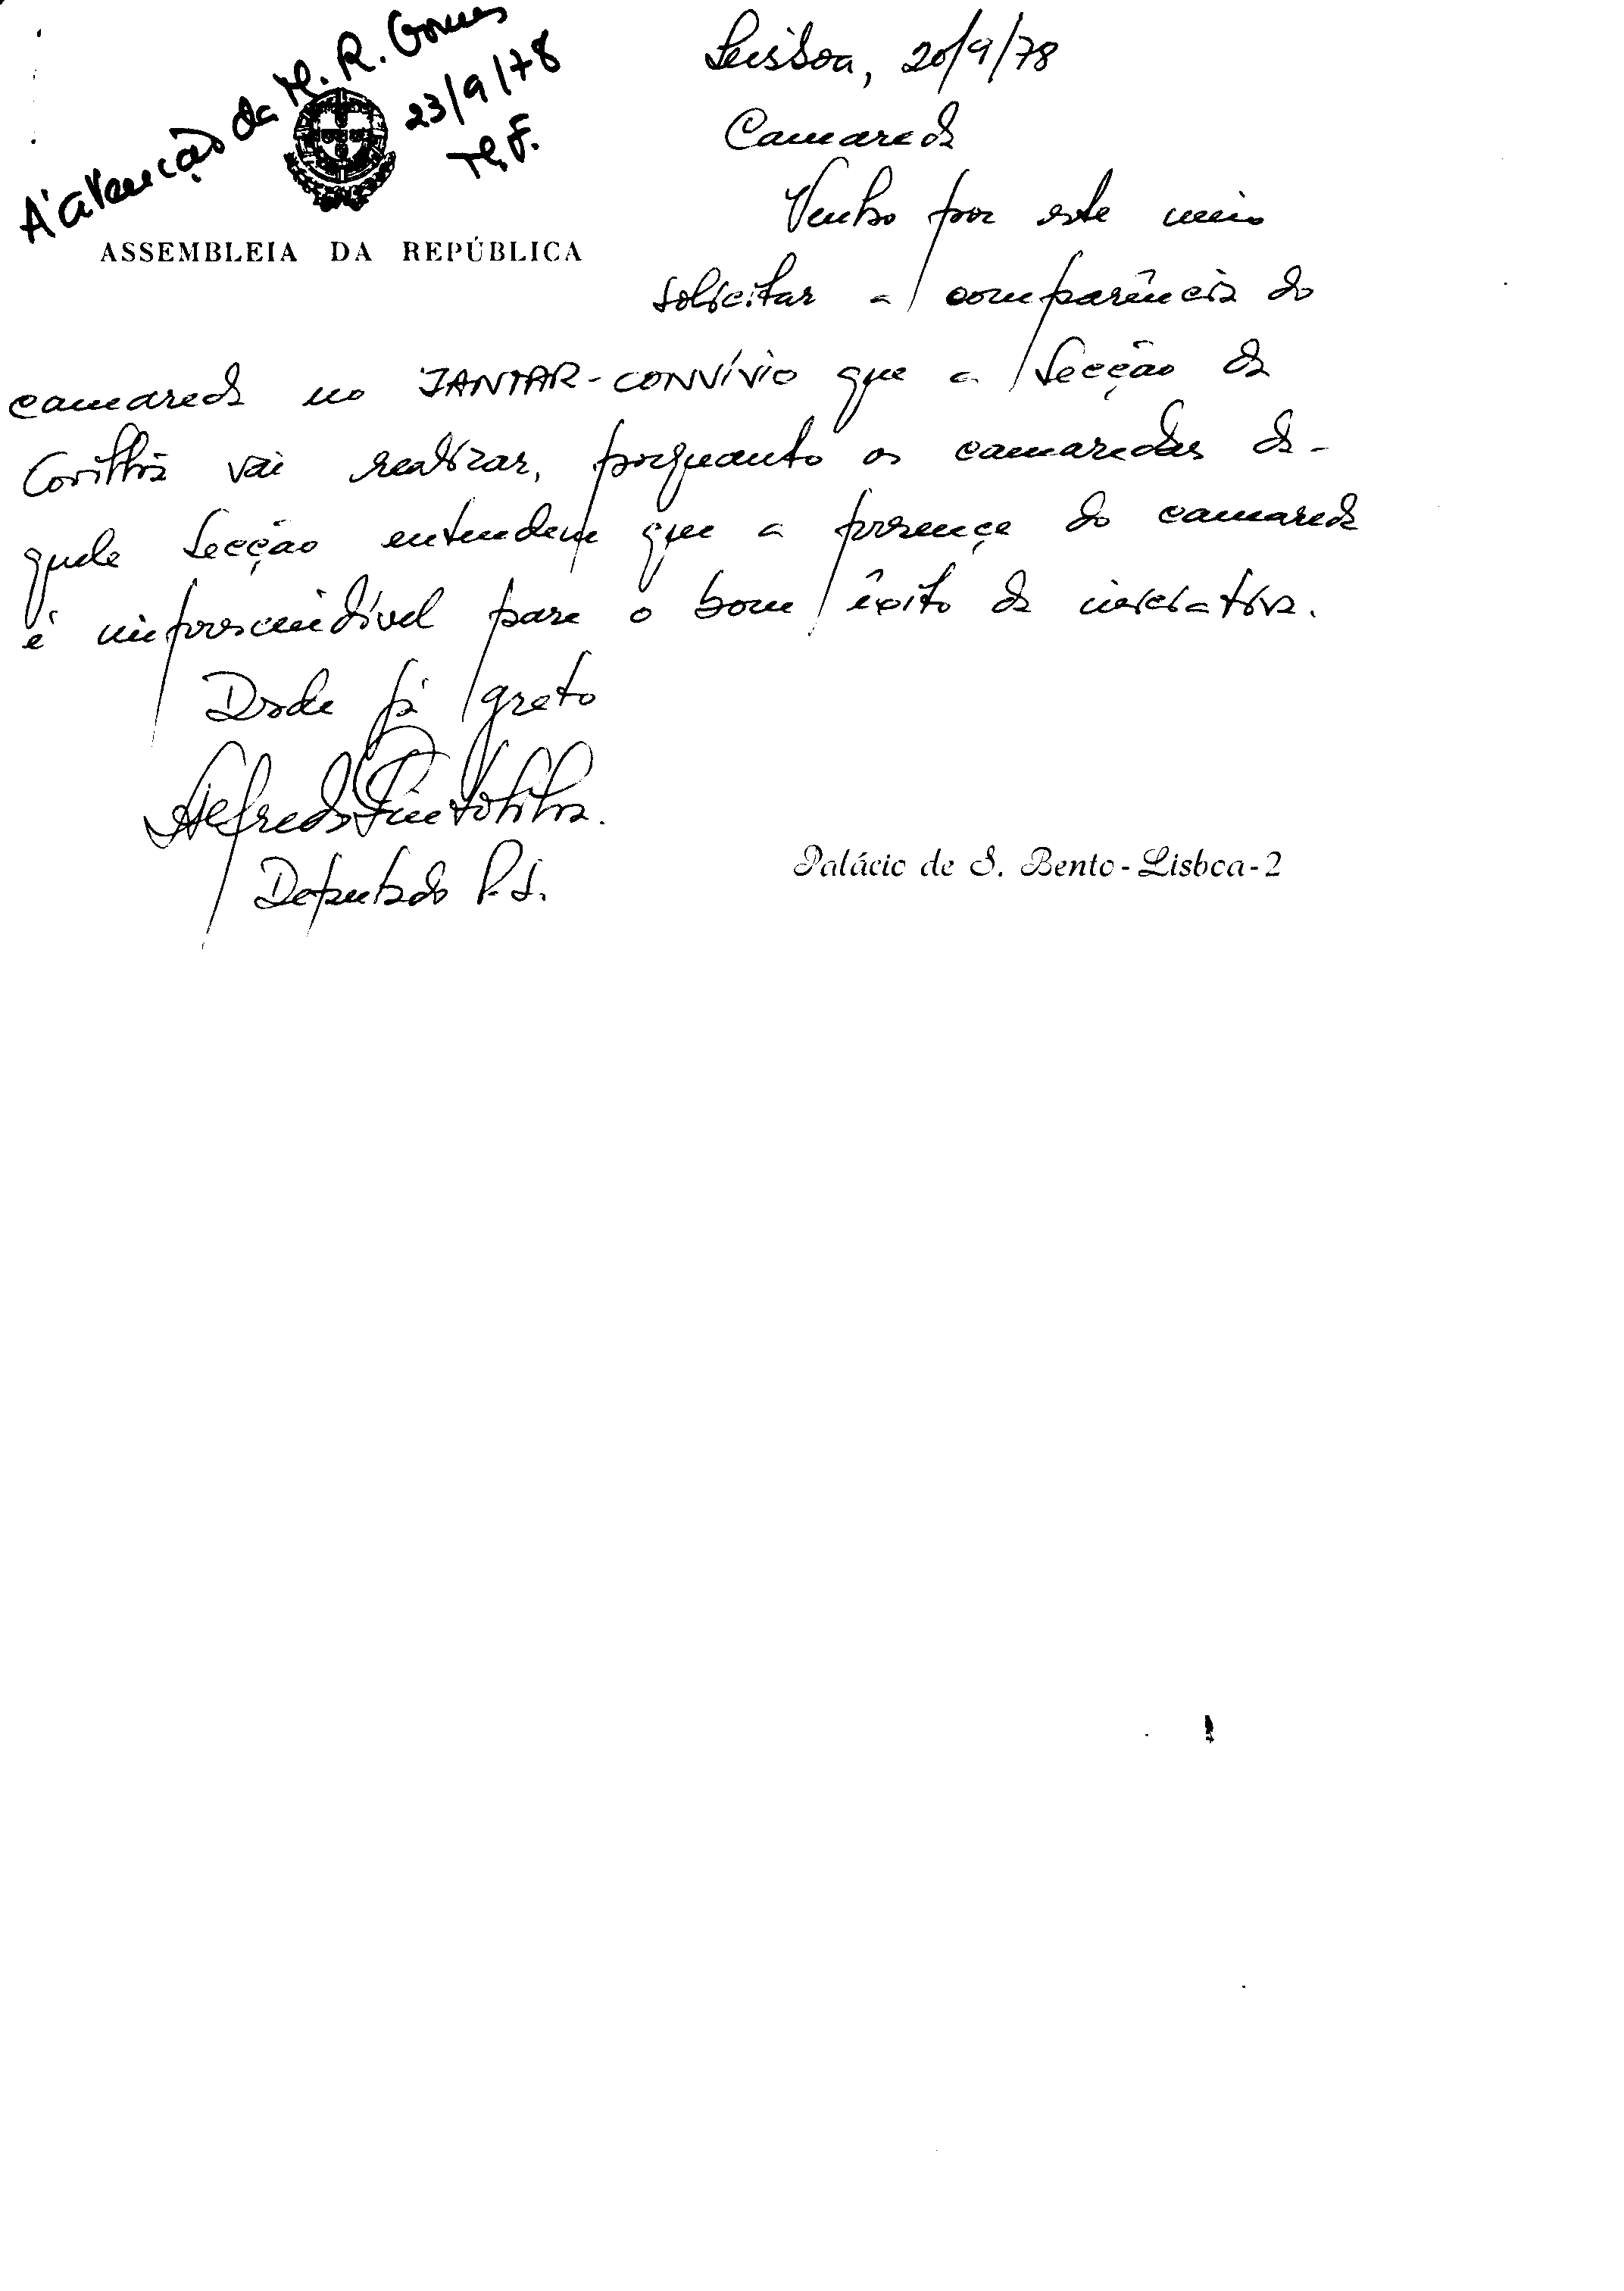 À atenção da M. R. Gomes
23/9/78
M.F.
ASSEMBLEIA DA REPÚBLICA
Lisboa, 20/9/78
Camarada
Venho por este meio
solicitar a comparência do
camarada no JANTAR-CONVÍVIO que a Secção da
Covilhã vai realizar, porquanto os camaradas da-
quele Secção entendem que a presença do camarada
é imprescindível para o bom êxito da iniciativa.
Desde já grato
Alfredo Pinto Silva.
Deputado P.S.
Palácio de S. Bento - Lisboa - 2